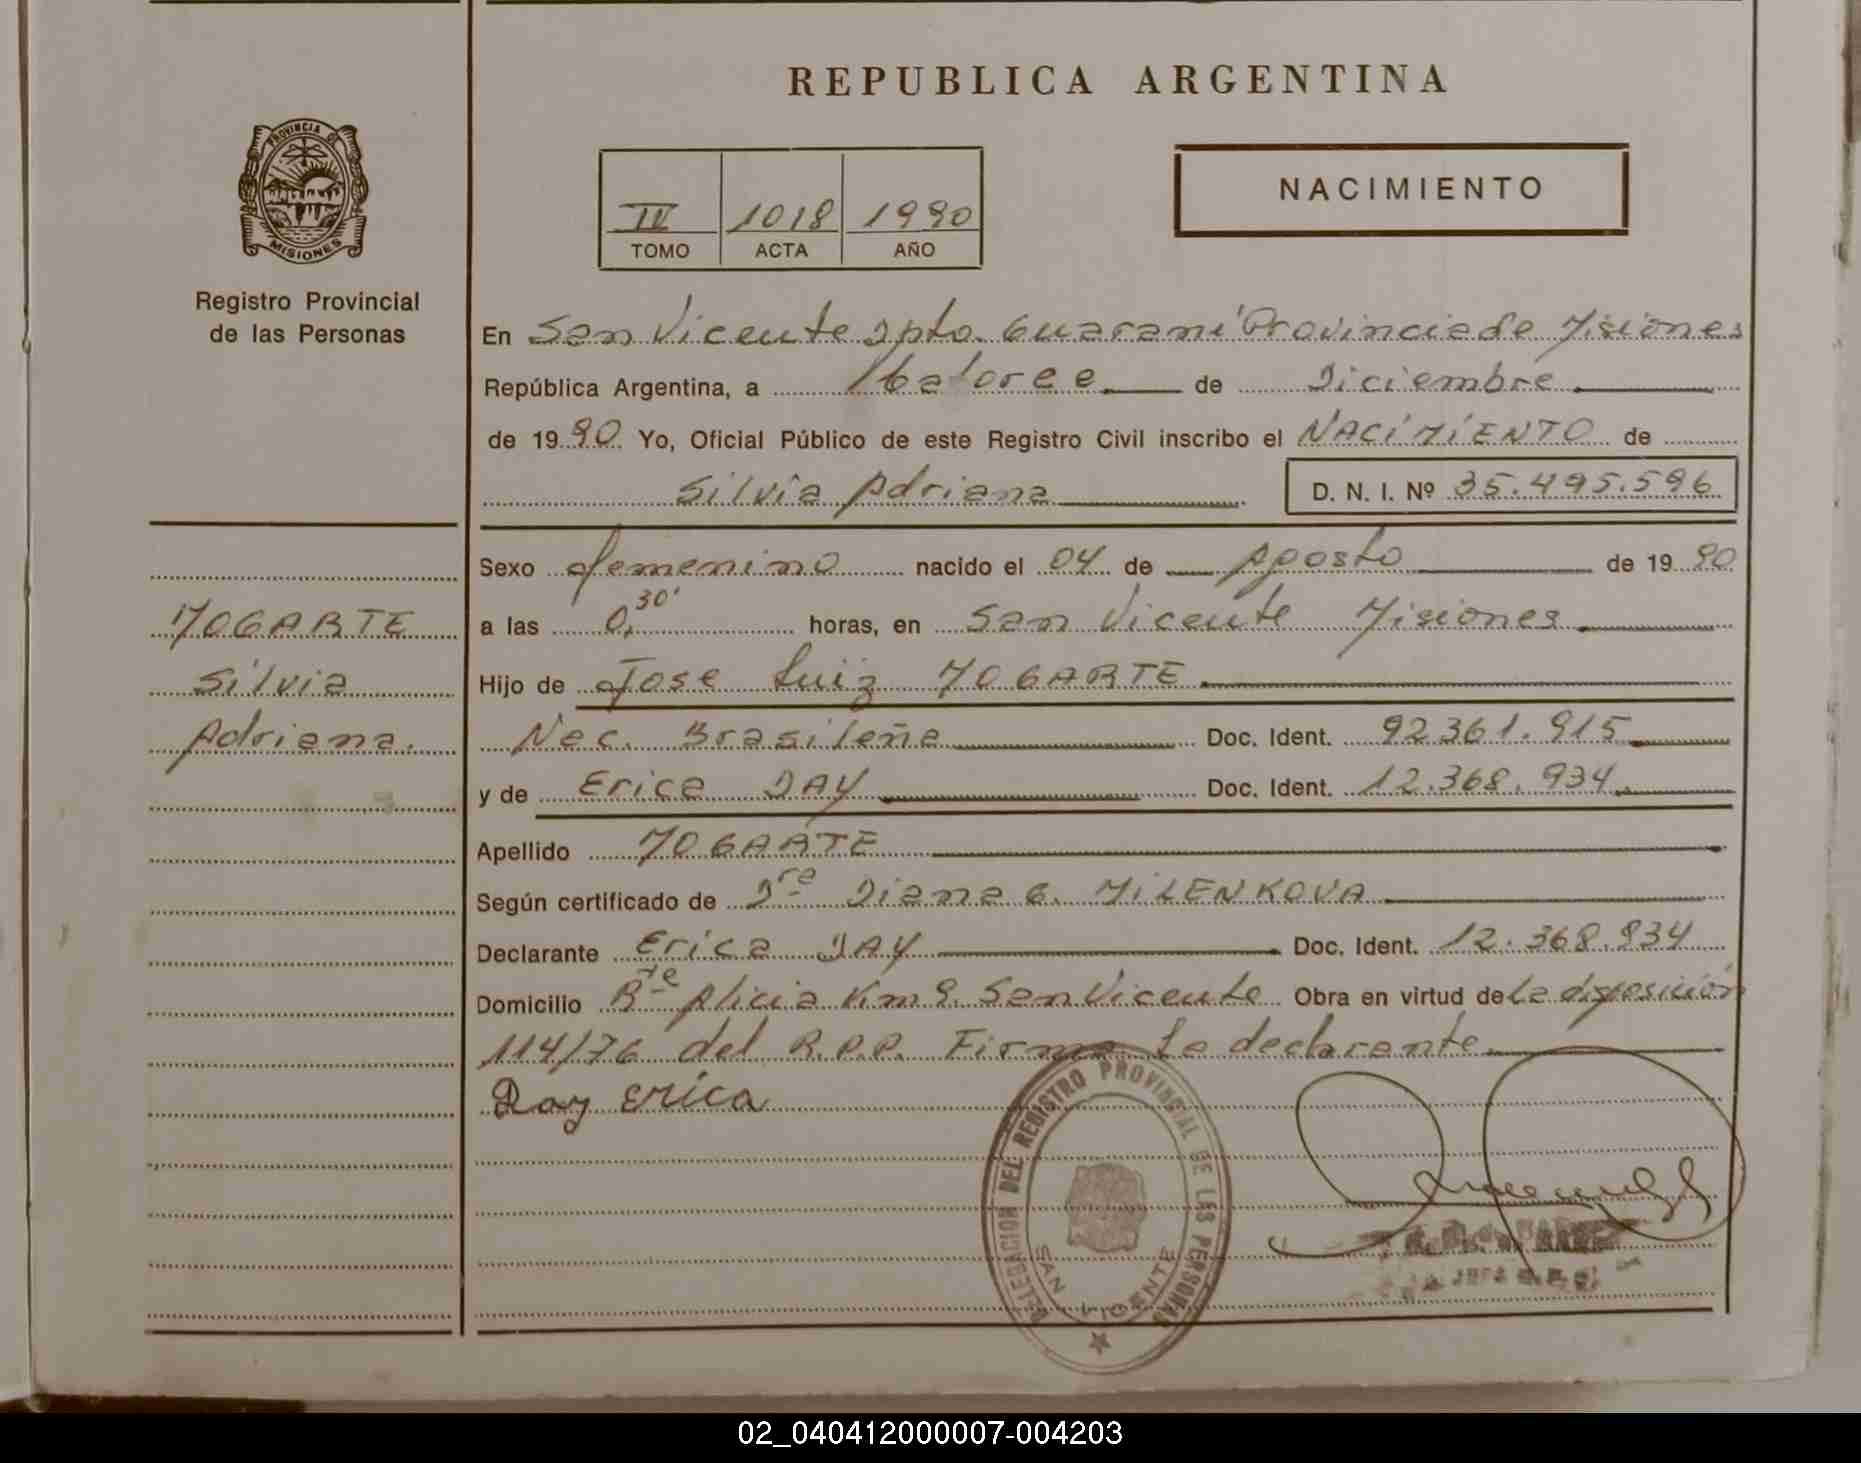 REPUBLICA ARGENTINA
PROVINCIA DE
MISIONES
Registro Provincial
de las Personas
IV 1018 1990
TOMO ACTA AÑO
NACIMIENTO
En San Vicente Dpto. Guaraní Provincia de Misiones
República Argentina, a Catorce de Diciembre
de 1990 Yo, Oficial Público de este Registro Civil inscribo el NACIMIENTO de
Silvia Adriana D. N. I. Nº 35.495.596
MOGARTE
Silvia
Adriana.
Sexo femenino nacido el 04 de Agosto de 1990
a las 0,30' horas, en San Vicente Misiones
Hijo de Jose Luiz MOGARTE
Nac. Brasileña Doc. Ident. 92361.915
y de Erica DAY Doc. Ident. 12.368.934
Apellido MOGARTE
Según certificado de Dra Diana G. MILENKOVA
Declarante Erica DAY Doc. Ident. 12.368.934
Domicilio Alicia Km 9. San Vicente Obra en virtud de La disposición
114/76 del R.P.P. Firma La declarante
Day Erica
DELEGACION DEL REGISTRO PROVINCIAL DE LAS PERSONAS
SAN VICENTE
02_040412000007-004203